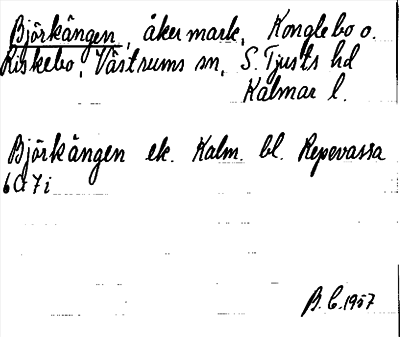 Björkängen, åkermark, Konglebo o.
Riskebo, Västrums sn, S. Tjusts hd
Kalmar l.
Björkängen ek. Kalm. bl. Repevassa
6G7i
B.C. 1957